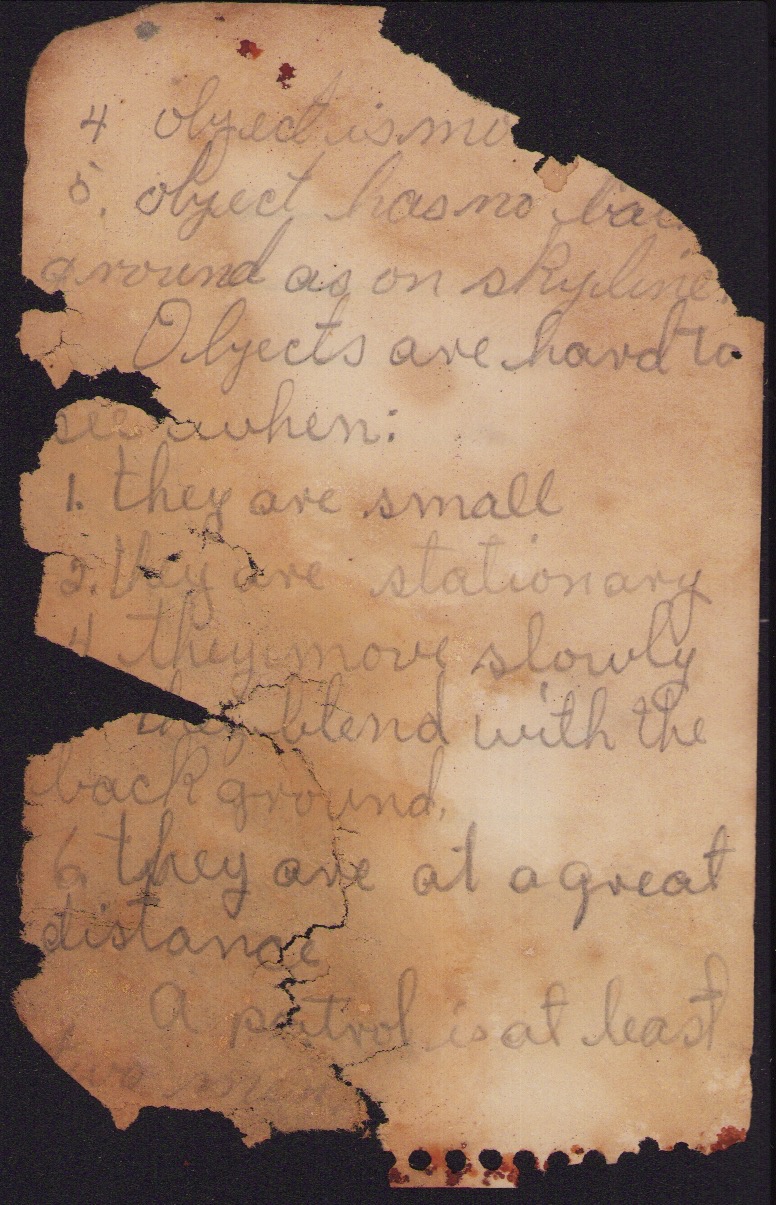 4 object is mo
5. object has no bac
ground as on skyline.
Objects are hard to
see when:
1. they are small
2. they are stationary
4 they move slowly
they blend with the
back ground,
6. they are at a great
distance
A patrol is at least
two men.